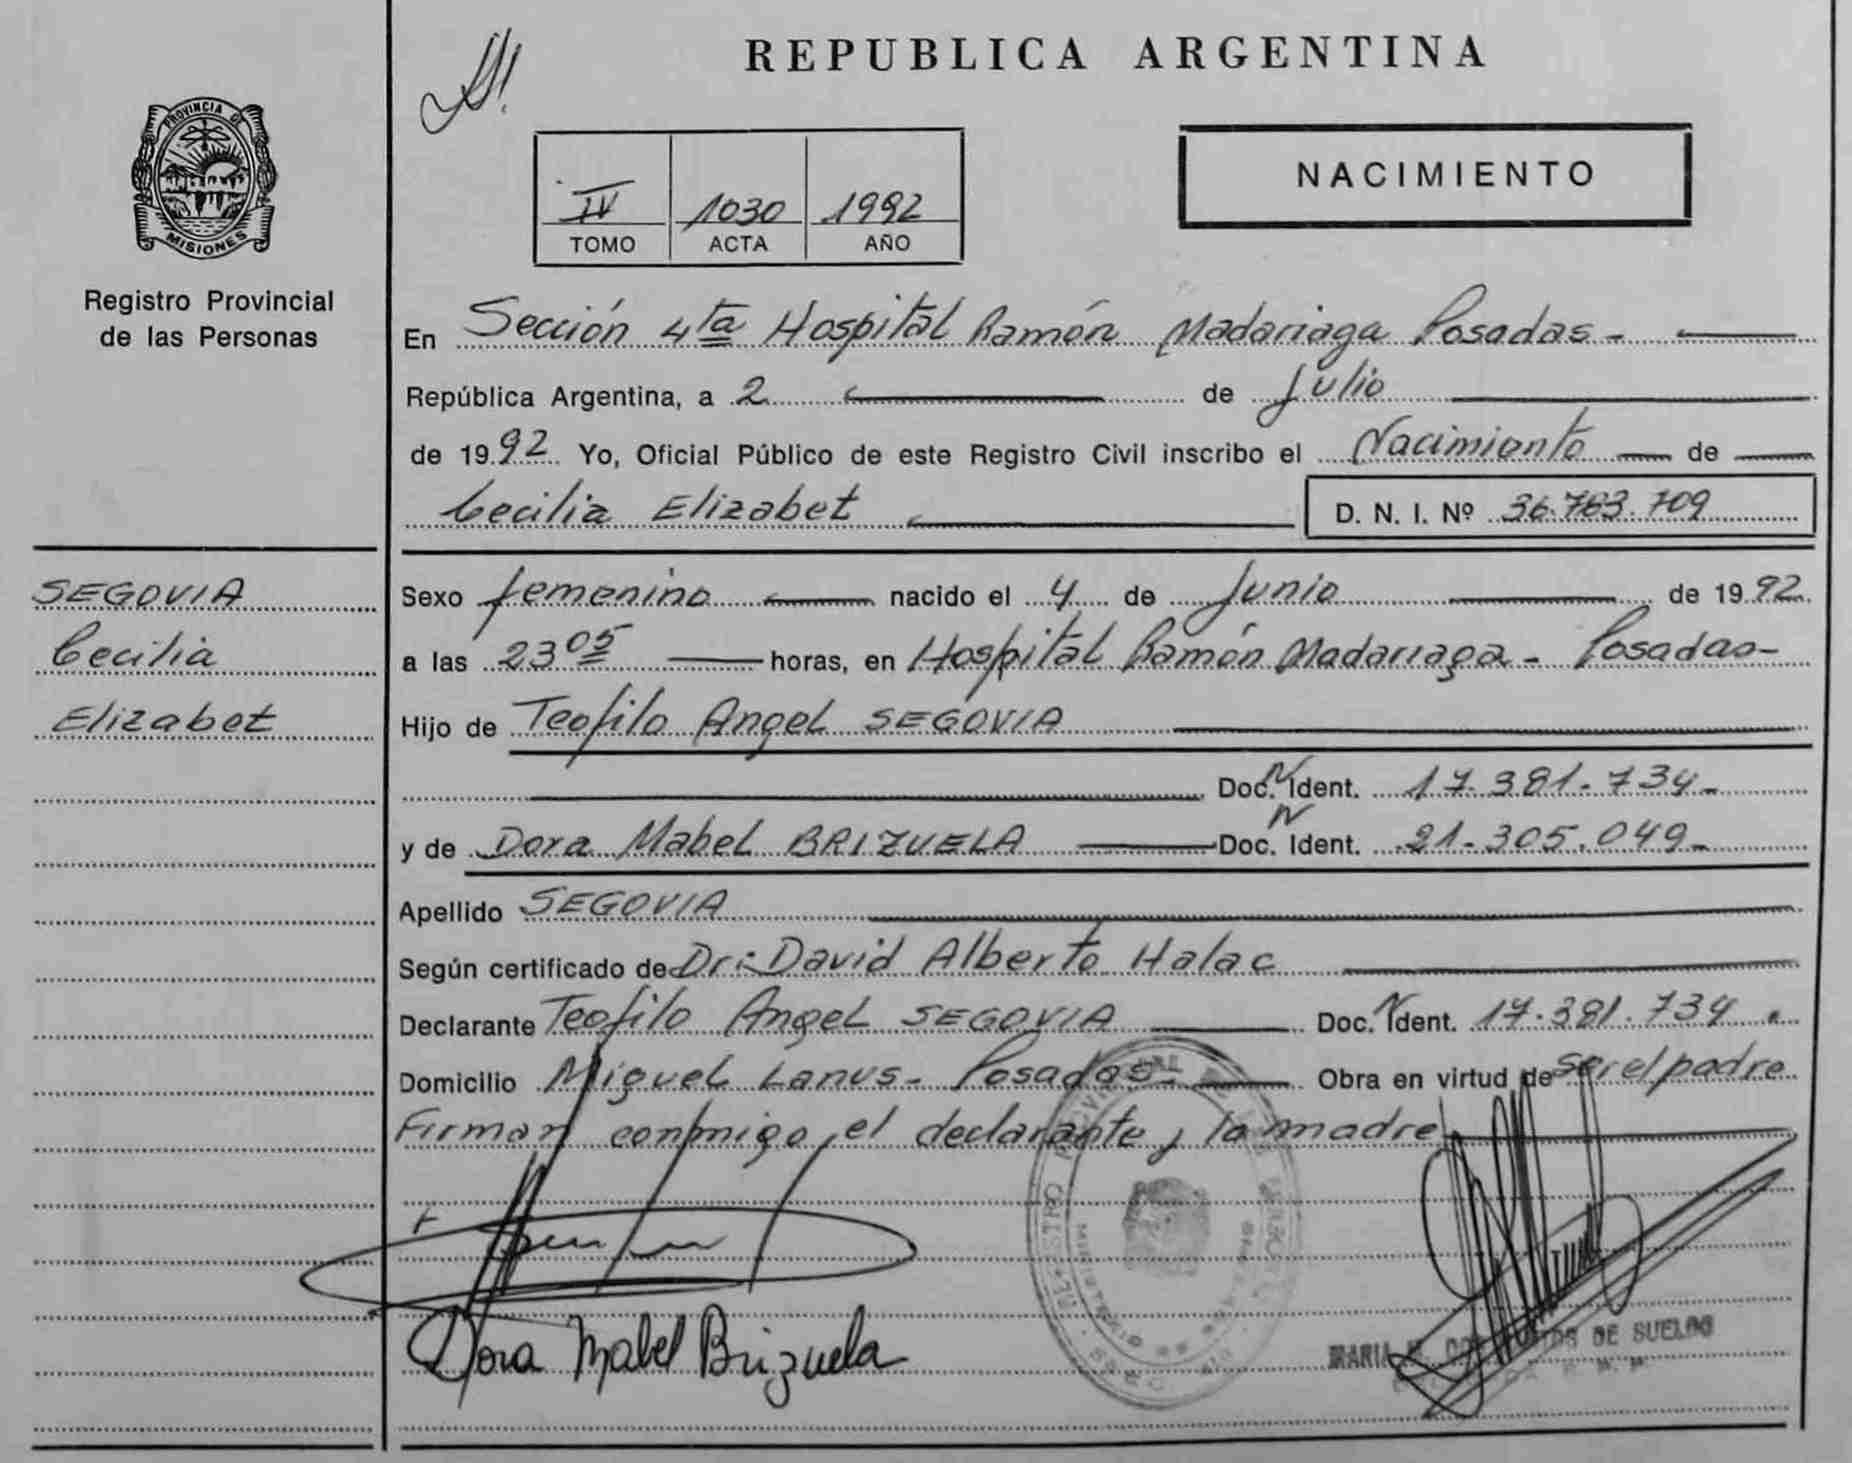 REPUBLICA ARGENTINA
PROVINCIA DE
MISIONES
Registro Provincial
de las Personas
IV 1030 1992
TOMO ACTA AÑO
NACIMIENTO
En Sección 4ta Hospital Ramón Madariaga Posadas -
República Argentina, a 2 de Julio
de 1992 Yo, Oficial Público de este Registro Civil inscribo el Nacimiento de
Cecilia Elizabet D. N. I. Nº 36.783.709
SEGOVIA
Cecilia
Elizabet
Sexo femenino nacido el 4 de Junio de 1992.
a las 23 05 horas, en Hospital Ramón Madariaga - Posadas -
Hijo de Teofilo Angel SEGOVIA
Doc. N Ident. 17.381.734 -
y de Dora Mabel BRIZUELA Doc. N Ident. 21.305.049 -
Apellido SEGOVIA
Según certificado de Dr: David Alberto Halac
Declarante Teofilo Angel SEGOVIA Doc. N Ident. 17.381.734.
Domicilio Miguel Lanus - Posadas - Obra en virtud de ser el padre
Firman conmigo, el declarante y la madre
Dora Mabel Brizuela
DE SUELDO